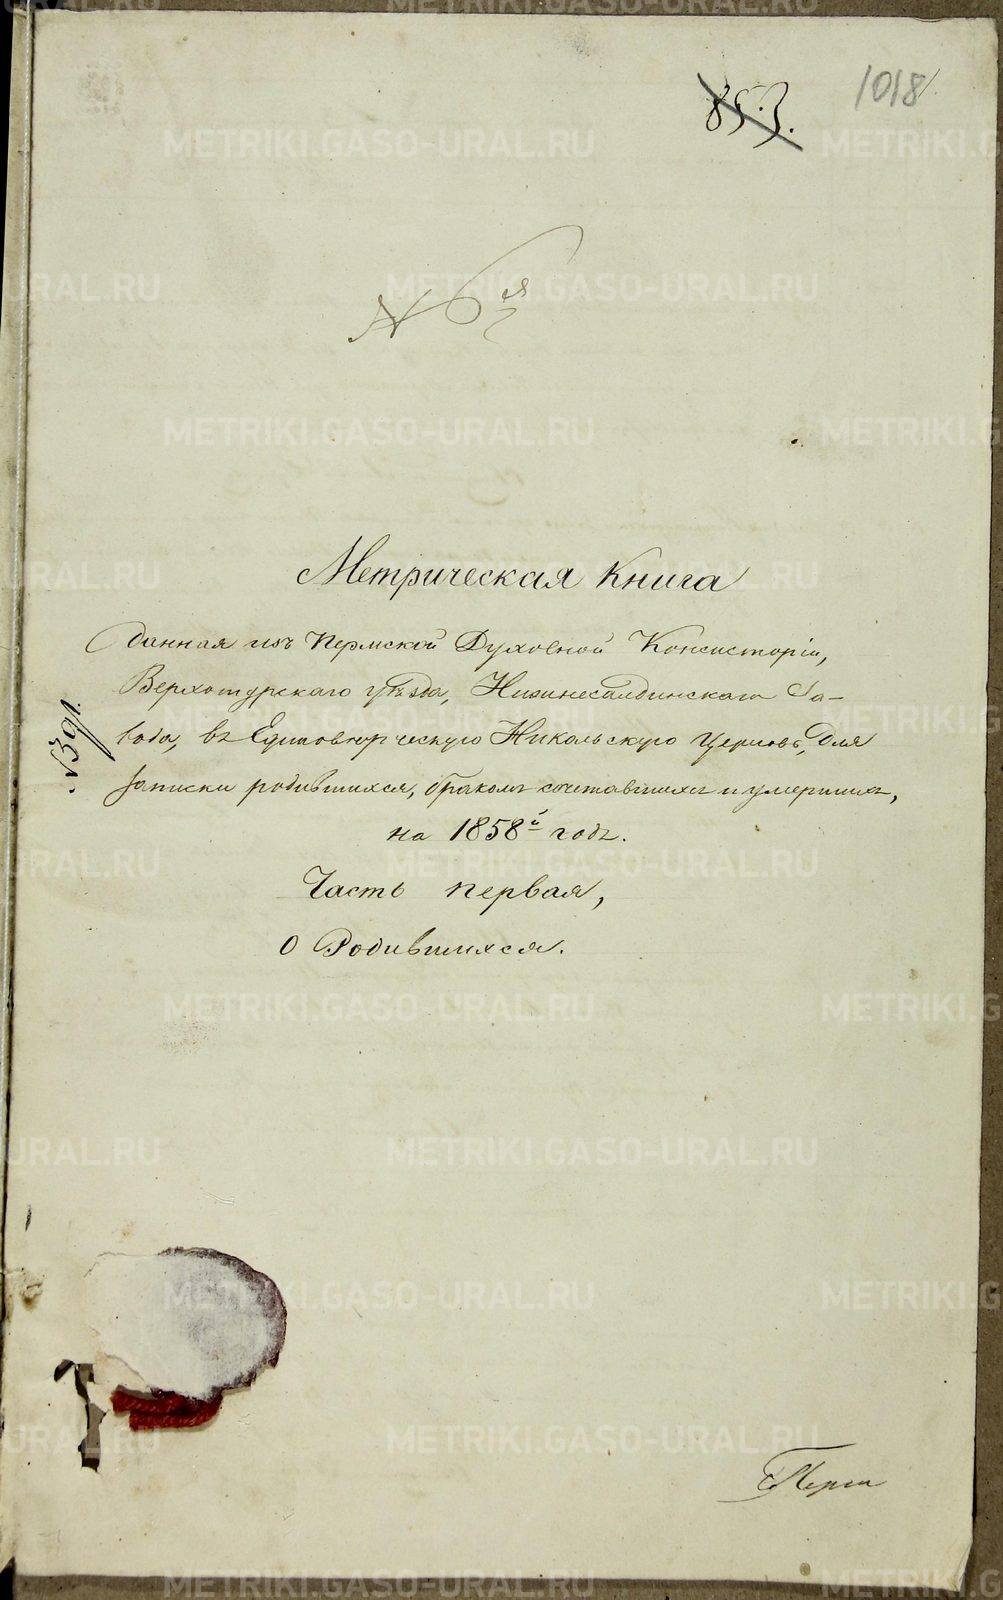 853.
1018
№ 6я
Метрическая Книга
данная изъ Пермской Духовной Консисторіи,
Верхотурскаго уѣзда, Нижнесалдинскаго За-
вода, въ Единовѣрческую Никольскую церковь, для
записки родившихся, бракомъ сочетавшихся и умершихъ,
на 1858й годъ.
Часть первая,
о Родившихся.
METRIKI.GASO-URAL.RU